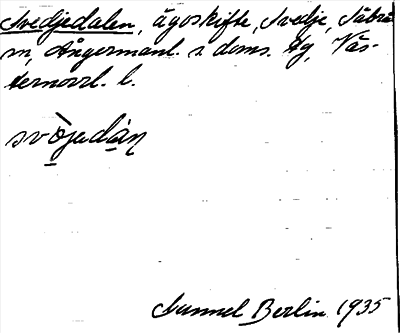 Svedjedalen, ägoskifte, Svedje, Säbrå
sn, Ångermanl. s. doms. tg, Väs-
ternorrl. l.
svòjedàn
Gunnel Berlin 1935